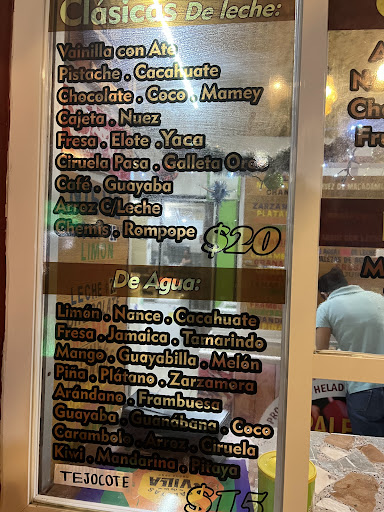 Clásicas De leche:
Vainilla con Ate
Pistache . Cacahuate
Chocolate . Coco . Mamey
Cajeta . Nuez
Fresa . Elote . Yaca
Ciruela Pasa . Galleta Oreo
Café . Guayaba
Arroz C/Leche
Chemis . Rompope
$20
De Agua:
Limón . Nance . Cacahuate
Fresa . Jamaica . Tamarindo
Mango . Guayabilla . Melón
Piña . Plátano . Zarzamora
Arándano . Frambuesa
Guayaba . Guanábana . Coco
Carambolo . Arroz . Ciruela
Kiwi . Mandarina . Pitaya
TEJOCOTE
$15
LIMÓN
LECHE
HELAD